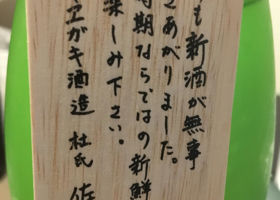 も新酒が無事
きあがりました。
時期ならではの新鮮
楽しみ下さい。
ヱガキ酒造 杜氏 佐